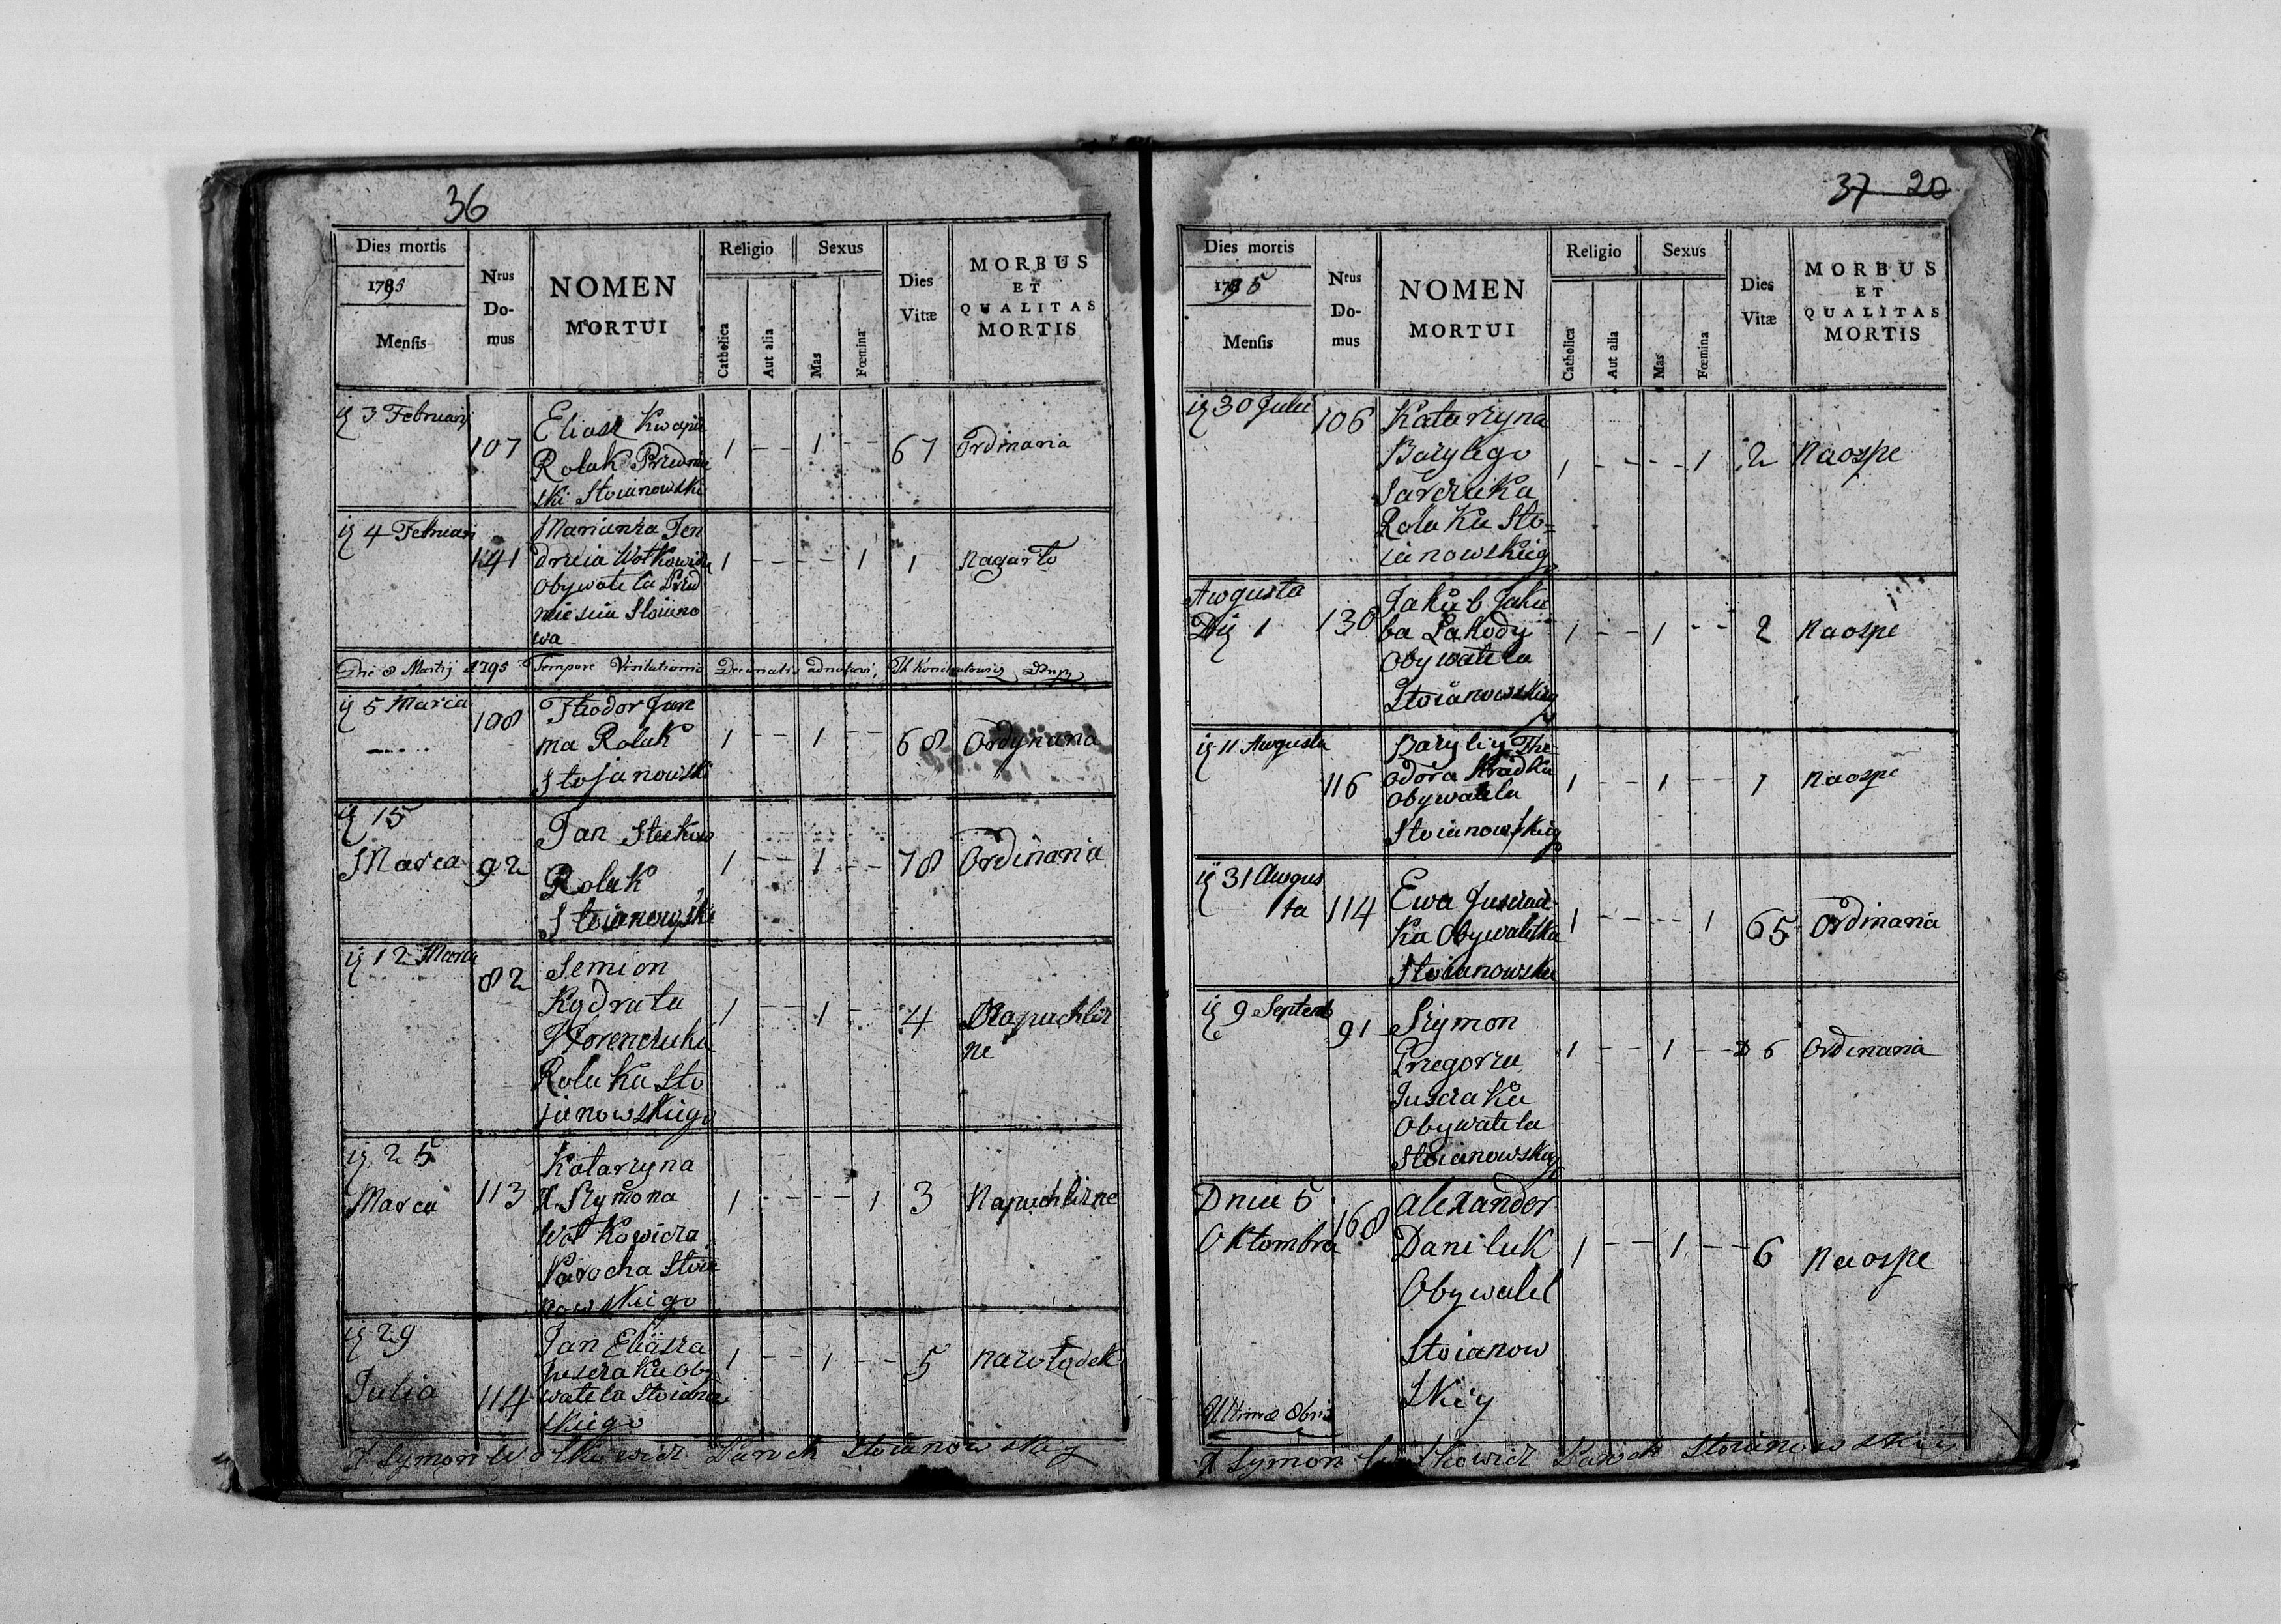 36
Dies mortis
1795
Mensis
Nrus Domus
NOMEN
MORTUI
Religio
Catholica
Aut alia
Sexus
Mas
Fœmina
Dies Vitæ
MORBUS
ET
QUALITAS
MORTIS
3 Februarij
107
Eliasz
Rolak
ski Stoianowski
1 - - 1 - - 67 Ordinaria
4 Februarij
141
Marianna Jen
drzeia Wolkowicza
Obywatela Przed
miescia Stoiano
wa
1 - - - - 1 1 nagarło
Die 8 Martij 1795 Tempore Visitationis Decanatis adnotavi,
5 Marca
108
Theodor
ma Rolak
Stojanowski
1 - - 1 - - 68 Ordynaria
15
Marca
92
Jan
Rolak
Stoianowski
1 - - 1 - - 78 Ordinaria
12 Marca
82
Semion
Kądrata
Rolaka Sto
janowskiego
1 - - 1 - - 4 Napuchli
ne
25
Marca
113
Katarzyna
X Szymona
Wołkowicza
Parocha Stoia
nowskiego
1 - - - - 1 3 Napuchline
29
Julia
114
Jan Eliasza
Juszczaka Oby
watela Stoiano
skiego
1 - - 1 - - 5
X Symon Wołkowicz Paroch Stoianowskiy
37 20
Dies mortis
1795
Mensis
Nrus Domus
NOMEN
MORTUI
Religio
Catholica
Aut alia
Sexus
Mas
Fœmina
Dies Vitæ
MORBUS
ET
QUALITAS
MORTIS
30 Julii
106
Katarzyna
Bazylego
Rolaka Sto=
janowskieg
1 - - - - 1 2 Naospe
Awgusta
Dij 1
130
Jakub Jaku
ba Lahody
Obywatela
Stoianowskieg
1 - - 1 - - 2 Naospe
11 Awgusta
116
Bazyliy The
odora Hradka
Obywatela
Stoianowskieg
1 - - 1 - - 1 naospe
31 Awgus
ta
114
Ewa Juszczacz
ka Obywatelka
Stoianowska
1 - - - - 1 65 Ordinaria
9 Septemb
91
Szymon
Grzegorza
Juszczaka
Obywatela
Stoianowskieg
1 - - 1 - - 6 Ordinaria
Dnia 5
Oktombra
168
Alexander
Daniluk
Obywatel
Stoianow
skiy
1 - - 1 - - 6 Naospe
Ultimæ
X Symon Wołkowicz Paroch Stoianowskiy